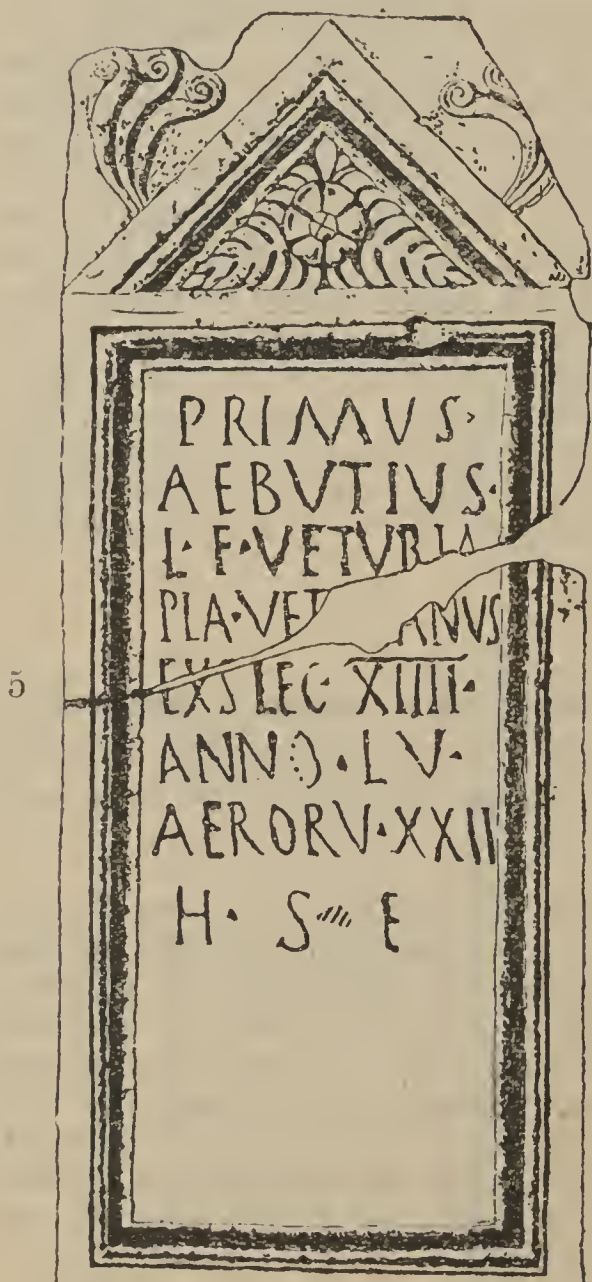 PRIMVS·
AEBVTIVS·
L·F·VETVRIA
PLA·VET ANVS
5 EXS LEG·XIIII·
ANNO·LV·
AERORV·XXII
H· S E